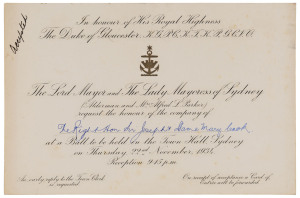 Accepted
In honour of His Royal Highness
The Duke of Gloucester, K.G., P.C., K.T., K.P., G.C.V.O.
The Lord Mayor and The Lady Mayoress of Sydney
(Alderman and Mrs Alfred L. Parker)
request the honour of the company of
The Right Hon Sir Joseph & Dame Mary Cook
at a Ball to be held in the Town Hall, Sydney
on Thursday 22nd November, 1934.
Reception 9.15 p.m.
An early reply to the Town Clerk
is requested
On receipt of acceptance a Card of
Entrée will be forwarded